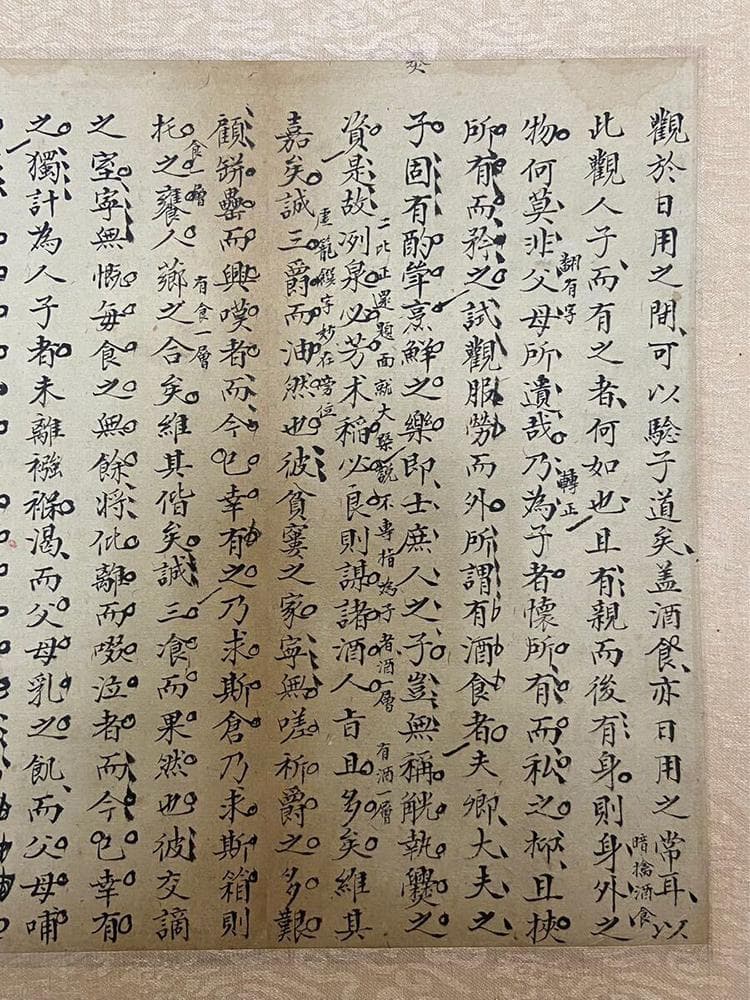 觀於日用之間可以驗子道矣盖酒食亦日用之常耳以
暗擒酒食
此觀人子而有之者何如也且有親而後有身則身外之
物何莫非父母所遺哉乃為子者懷所有而私之抑且挾
翻有字
轉正
所有而矜之試觀服勞而外所謂有酒食者夫卿大夫之
子固有酌犖烹鮮之樂即士庶人之子豈無稱觥執爨之
資是故冽泉必芳术稻必良則謀諸酒人旨且多矣維其
二比正還題面就大槩說不專指為子者酒一層
有酒一層
嘉矣誠三爵而油然也彼貧窶之家寧無嗟祈爵之多艱
虛籠饌字妙在旁位
顧缾罍而興嘆者而今也幸有之乃求斯倉乃求斯箱則
托之饔人薌之合矣維其偕矣誠三飡而果然也彼交謫
食一層
有食一層
之室寧無慨每食之無餘將仳離而啜泣者而今也幸有
之獨計為人子者未離襁褓渴而父母乳之飢而父母哺